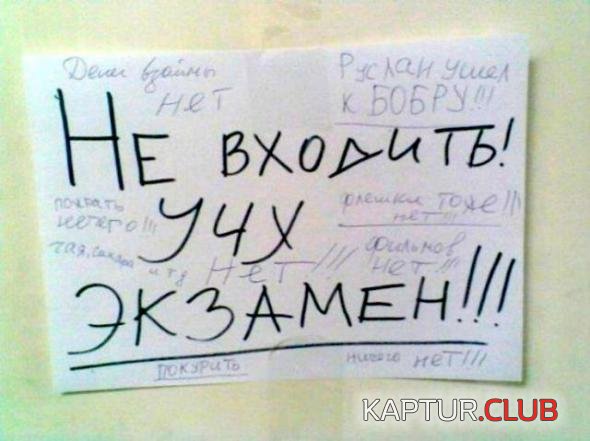 Денег взаймы
нет
Руслан ушел
к БОБРУ!!!
НЕ ВХОДИТЬ!
пожрать
нечего!!!
чая, сахара и т д нет!!!
УЧУ
флешки тоже!!!
нет!!!
фильмов
нет!!!
ЭКЗАМЕН!!!
ПОКУРИТЬ
ничего нет!!!
KAPTUR.CLUB